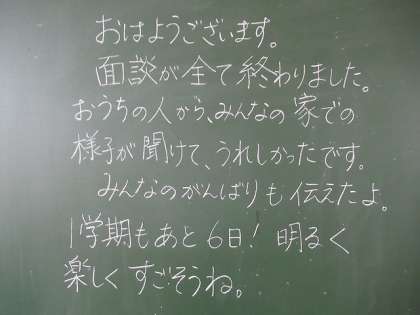 おはようございます。
面談が全て終わりました。
おうちの人から、みんなの家での
様子が聞けて、うれしかったです。
みんなのがんばりも伝えたよ。
1学期もあと6日！明るく
楽しくすごそうね。